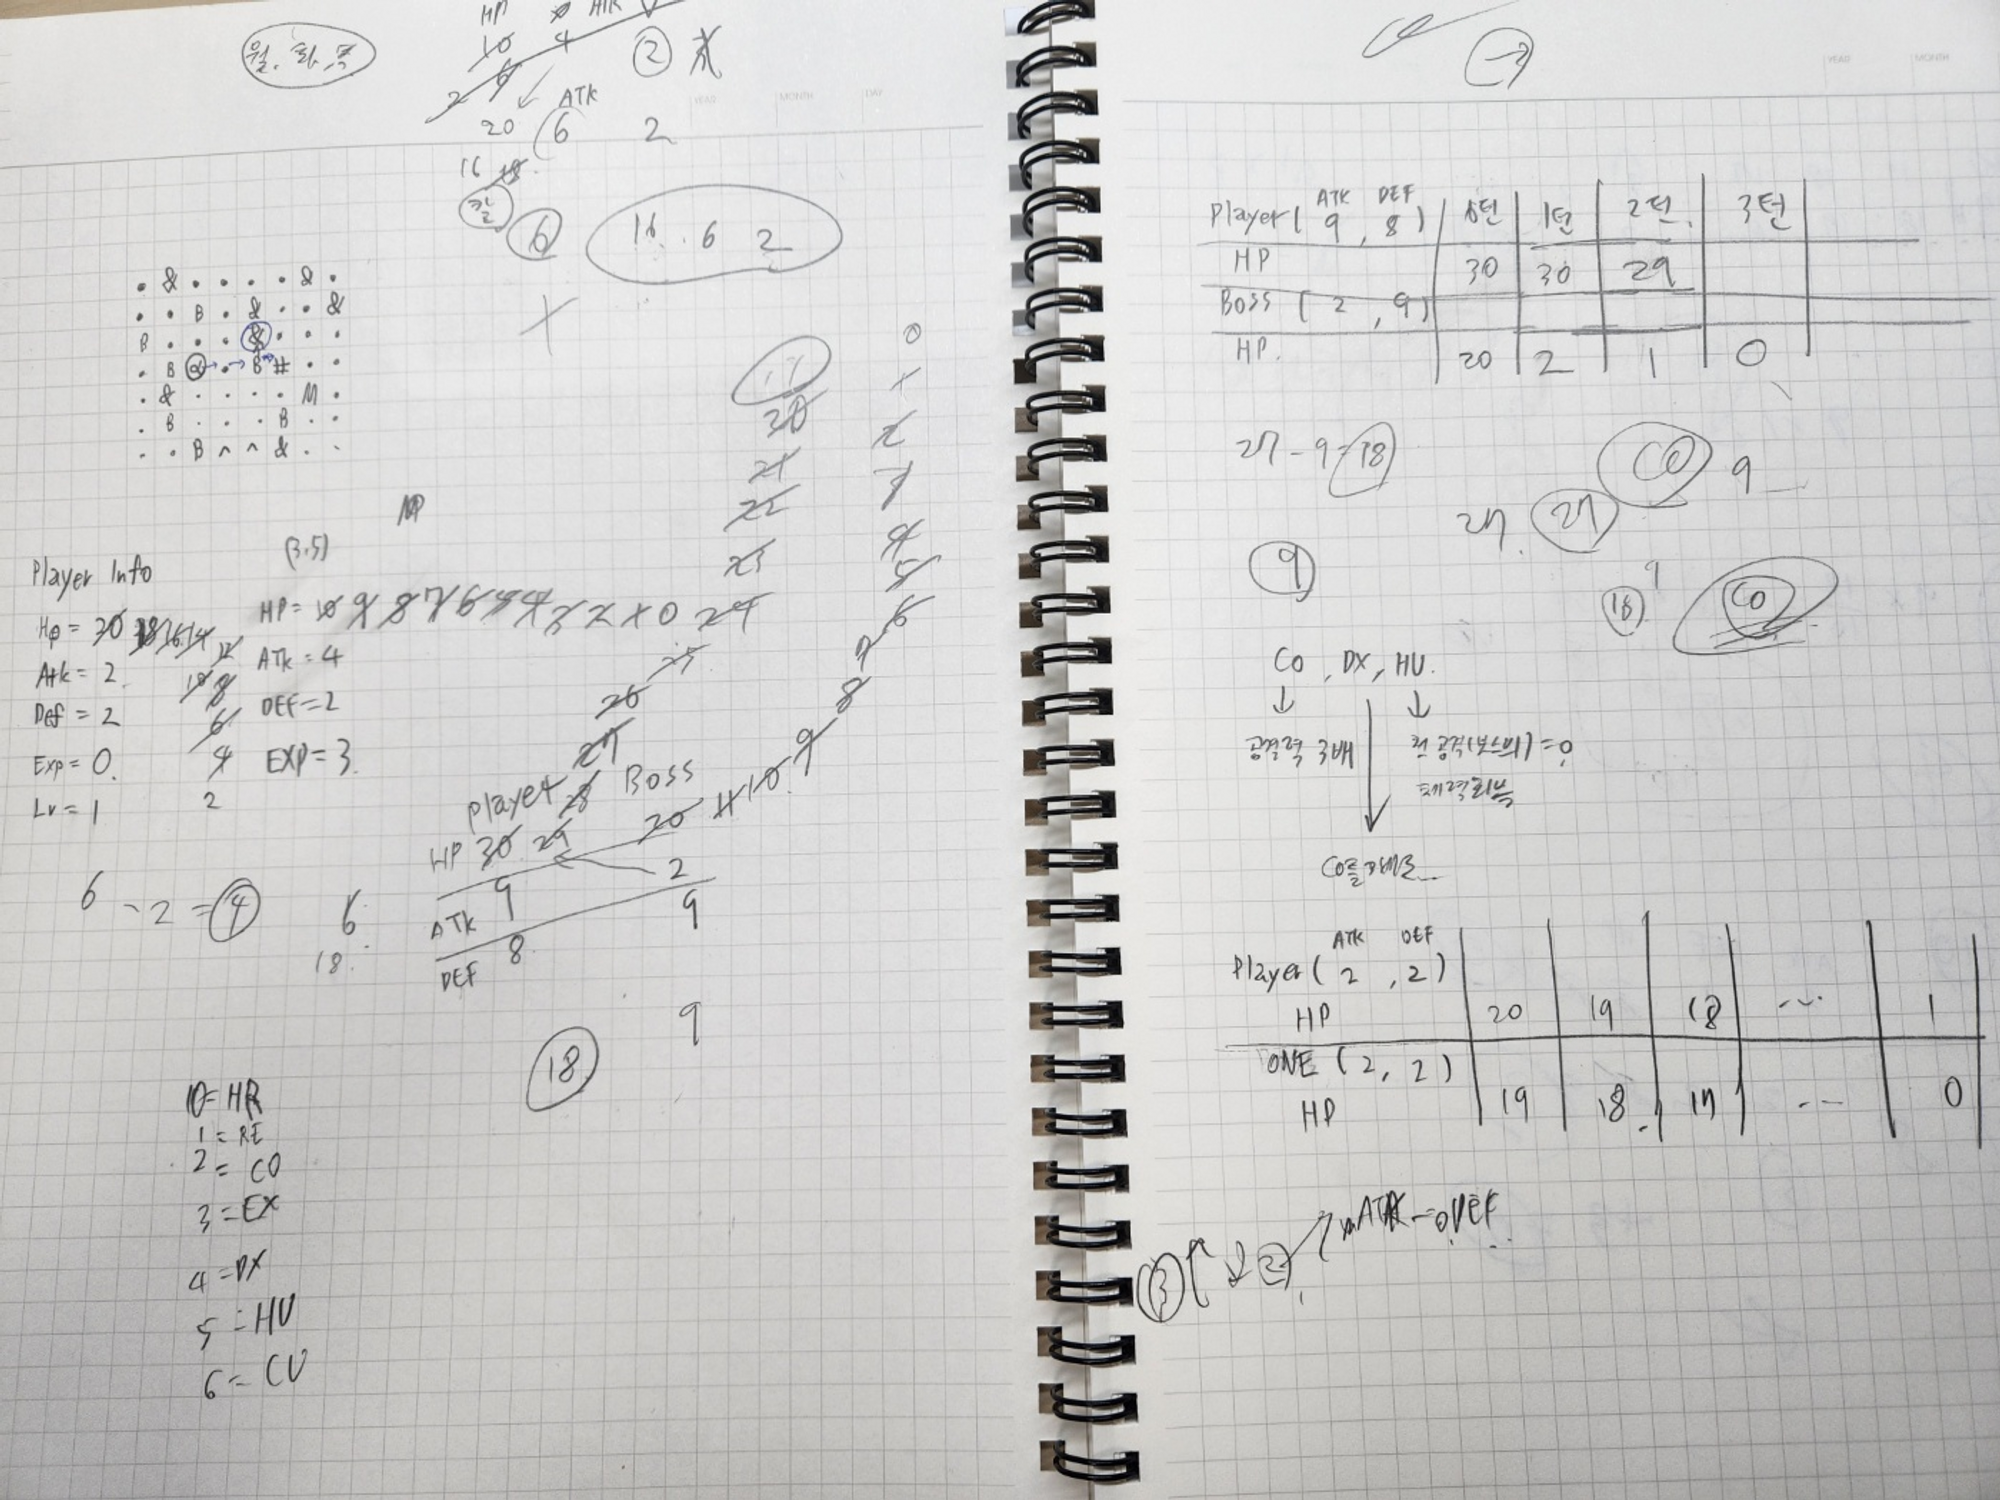 월, 화, 목
HP ATK
10 4 ②
2 6
ATK
20 6 2
16 18
칼 6
16 . 6 2
. & . . . . & .
. . B . & . . &
B . . . & . . .
. B @ . B # . .
. & . . . . M .
. B . . . B .
. . B ^ ^ & . .
(3,5)
Player Info
HP = 20 18 16 14 12 10 8 6 4 2
Atk = 2
Def = 2
Exp = 0.
Lv = 1
HP = 10 9 8 7 6 5 4 3 2 1 0
ATK = 4
DEF = 2
EXP = 3
30
21
22
23
24
25
26
27
0
1
2
3
4
5
6
7
8
9
Player 28 Boss
HP 30 29 20 11 10
ATK 9 2
DEF 8 9
6 - 2 = 4
6
18
9
18
0 = HR
1 = RE
2 = CO
3 = EX
4 = DX
5 = HU
6 = CU
Player( ATK 9 , DEF 8 ) 0턴 1턴 2턴 3턴
HP 30 30 29
BOSS ( 2 , 9 )
HP. 20 2 1 0
27 - 9 = 18
CO 9
27. 27
9
9
18 CO
CO , DX, HU.
↓ ↓
공격력 3배 첫 공격(보스의) = 0
체력회복
Player ( ATK 2 , DEF 2 )
HP 20 19 18 ... 1
ONE ( 2, 2 )
HP 19 18 17 ... 0
3 2